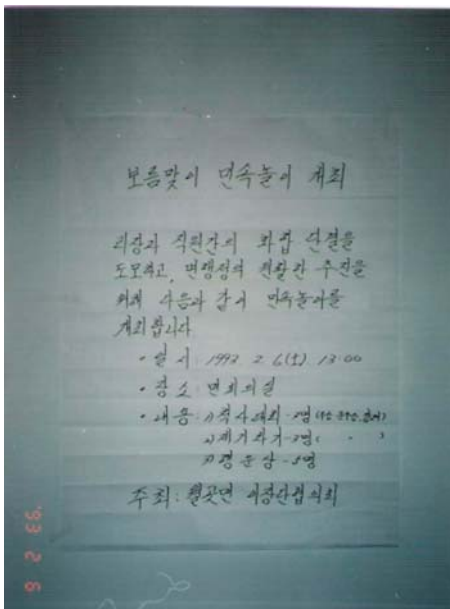 보름맞이 민속놀이 개최
리장과 직원간의 화합 단결을
도모하고, 면행정의 원활한 추진을
위해 다음과 같이 민속놀이를
개최합니다
• 일시: 1993. 2. 6(土). 13:00
• 장소: 면회의실
• 내용: 1) 척사대회-3명
2) 제기차기-3명( " )
3) 행운상-5명
주최: 월곶면 이장단협의회
'93 2 6